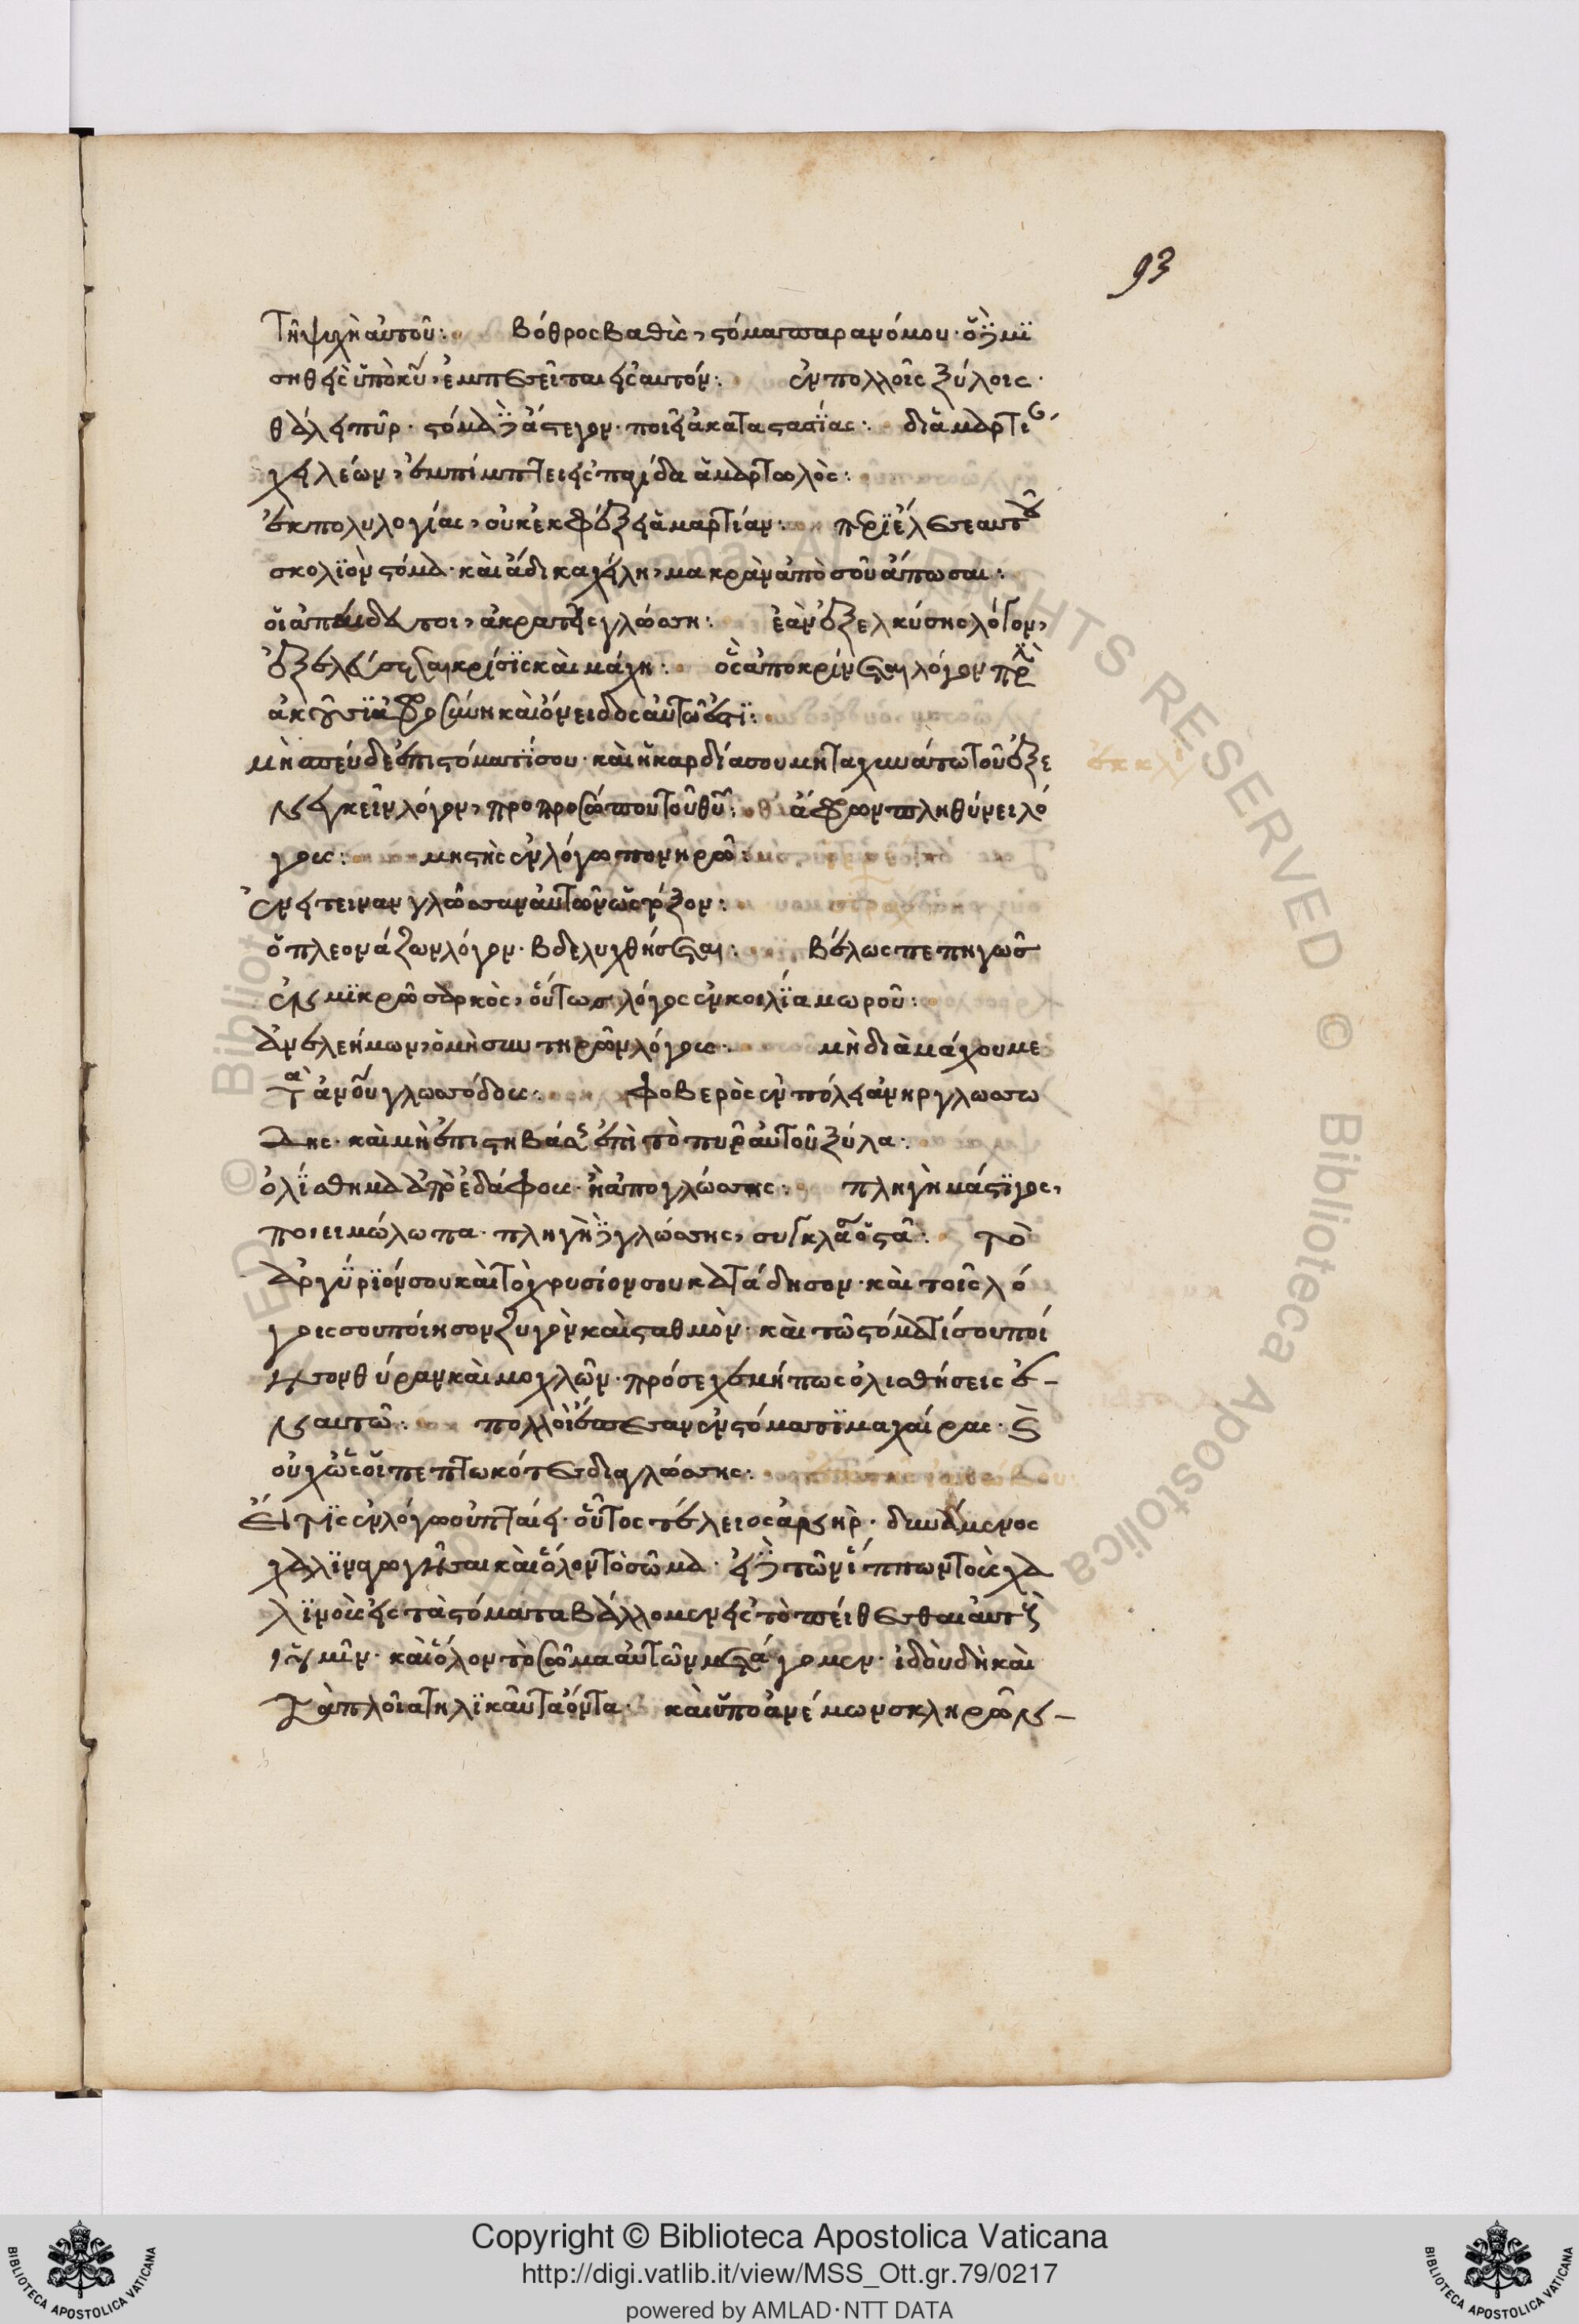 93
τῆ ψυχῆ αὐτοῦ: βόθρος βαθὺς, στόμα παρανόμου· ὁ δὲ μι
σηθεὶς ὑπὸ κυ, ἐμπεσεῖται εἰς αὐτόν: ἐν πολλοῖς ξύλοις
θάλλει πῦρ· στόμα δὲ ἄστεγον· ποιεῖ ἀκαταστασίας: δι ἁμαρτί
χειλέων, ἐμπίπτει εἰς παγίδα ἁμαρτωλὸς:
ἐκ πολυλογίας, οὐκ ἐκφεύξει ἁμαρτίαν: περίελε σεαυτοῦ
σκολιὸν στόμα· καὶ ἄδικα χείλη, μακρὰν ἀπὸ σοῦ ἄπωσαι:
οἱ ἀπαίδευτοι, ἀκρατεῖς γλώσση: ἐὰν ἐξελκύσης λόγον,
ἐξελεύσεται κρίσις καὶ μάχη: ὃς ἀποκρίνεται λόγον πρὶν
ἀκοῦσαι ἀφροσύνη καὶ ὄνειδος αὐτῶ ἐστι:
μὴ σπεύδε ἐπὶ στόματί σου· καὶ ἡ καρδία σου μὴ ταχυνάτω τοῦ ἐξε
νεγκεῖν λόγον, πρὸ προσώπου τοῦ θυ: ἄφρων πληθύνει λό
γους: μὴ στῆς ἐν λόγω πονηρῶ:
ἐνέτειναν γλῶσσαν αὐτῶν ὡς τόξον:
ὁ πλεονάζων λόγον· βδελυχθήσεται: βέλος πεπηγὼς
ἐν μηρῶ σαρκὸς, οὕτως λόγος ἐν κοιλία μωροῦ:
ἀνελεήμων, ὁ μὴ συντηρῶν λόγους: μὴ διαμάχου με
τὰ ἀνου γλωσσώδους: φοβερὸς ἐν πόλει ἀνὴρ γλωσσώ
δης· καὶ μὴ ἐπιστιβάσης ἐπὶ τὸ πῦρ αὐτοῦ ξύλα:
ὀλίσθημα ἀπὸ ἐδάφους· ἢ ἀπὸ γλώσσης: πληγὴ μάστιγος,
ποιεῖ μώλωπα· πληγὴ δὲ γλώσσης, συγκλᾶ ὀστᾶ: τὸ
ἀργύριόν σου καὶ τὸ χρυσίον σου κατάδησον· καὶ τοῖς λό
γοις σου ποίησον ζυγὸν καὶ σταθμὸν· καὶ τῶ στόματί σου ποί
ησον θύραν καὶ μοχλὸν· πρόσεχε μήπως ὀλισθήσεις ἐ-
ν αὐτῶ: πολλοὶ ἔπεσαν ἐν στόματι μαχαίρας· καὶ
οὐχ ὡς οἱ πεπτωκότες διὰ γλώσσης:
Εἴ τις ἐν λόγω οὐ πταίει· οὗτος τέλειος ἀνήρ· δυνάμενος
χαλιναγωγῆσαι καὶ ὅλον τὸ σῶμα· εἰ δὲ τῶν ἵππων τοὺς χα
λινοὺς εἰς τὰ στόματα βάλλομεν εἰς τὸ πείθεσθαι αὐτοὺς
ἡμῖν· καὶ ὅλον τὸ σῶμα αὐτῶν μετάγομεν· ἰδοὺ δὴ καὶ
τὰ πλοῖα τηλικαῦτα ὄντα· καὶ ὑπὸ ἀνέμων σκληρῶν-
© Biblioteca Apostolica Vaticana, ALL RIGHTS RESERVED
Copyright © Biblioteca Apostolica Vaticana
http://digi.vatlib.it/view/MSS_Ott.gr.79/0217
powered by AMLAD·NTT DATA
BIBLIOTECA APOSTOLICA VATICANA
BIBLIOTECA APOSTOLICA VATICANA